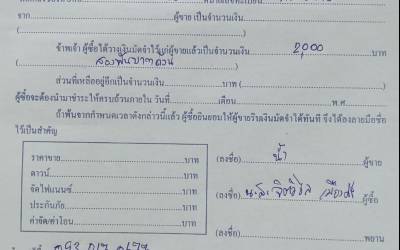 จาก.......................................................ผู้ขาย เป็นจำนวนเงิน
(.......................................................)
ข้าพเจ้า ผู้ซื้อได้วางเงินมัดจำไว้แก่ผู้ขายแล้วเป็นจำนวนเงิน 2,000 บาท
( สองพันบาทถ้วน )
ส่วนที่เหลืออยู่อีกเป็นจำนวนเงิน..........................บาท (..........................)
ผู้ซื้อจะต้องนำมาชำระให้ครบถ้วนภายใน วันที่..............เดือน..........................พ.ศ.
ถ้าพ้นจากกำหนดเวลาดังกล่าวนี้แล้ว ผู้ซื้อยินยอมให้ผู้ขายริบเงินมัดจำได้ทันที จึงได้ลงลายมือชื่อ
ไว้เป็นสำคัญ
ราคาขาย..........................บาท
ดาวน์..........................บาท
จัดไฟแนนซ์..........................บาท
ประกันภัย..........................บาท
ค่าจัด/ค่าโอน..........................บาท
(ลงชื่อ) น้ำ ผู้ขาย
(ลงชื่อ) น.ส. ผู้ซื้อ
(ลงชื่อ)..........................พยาน